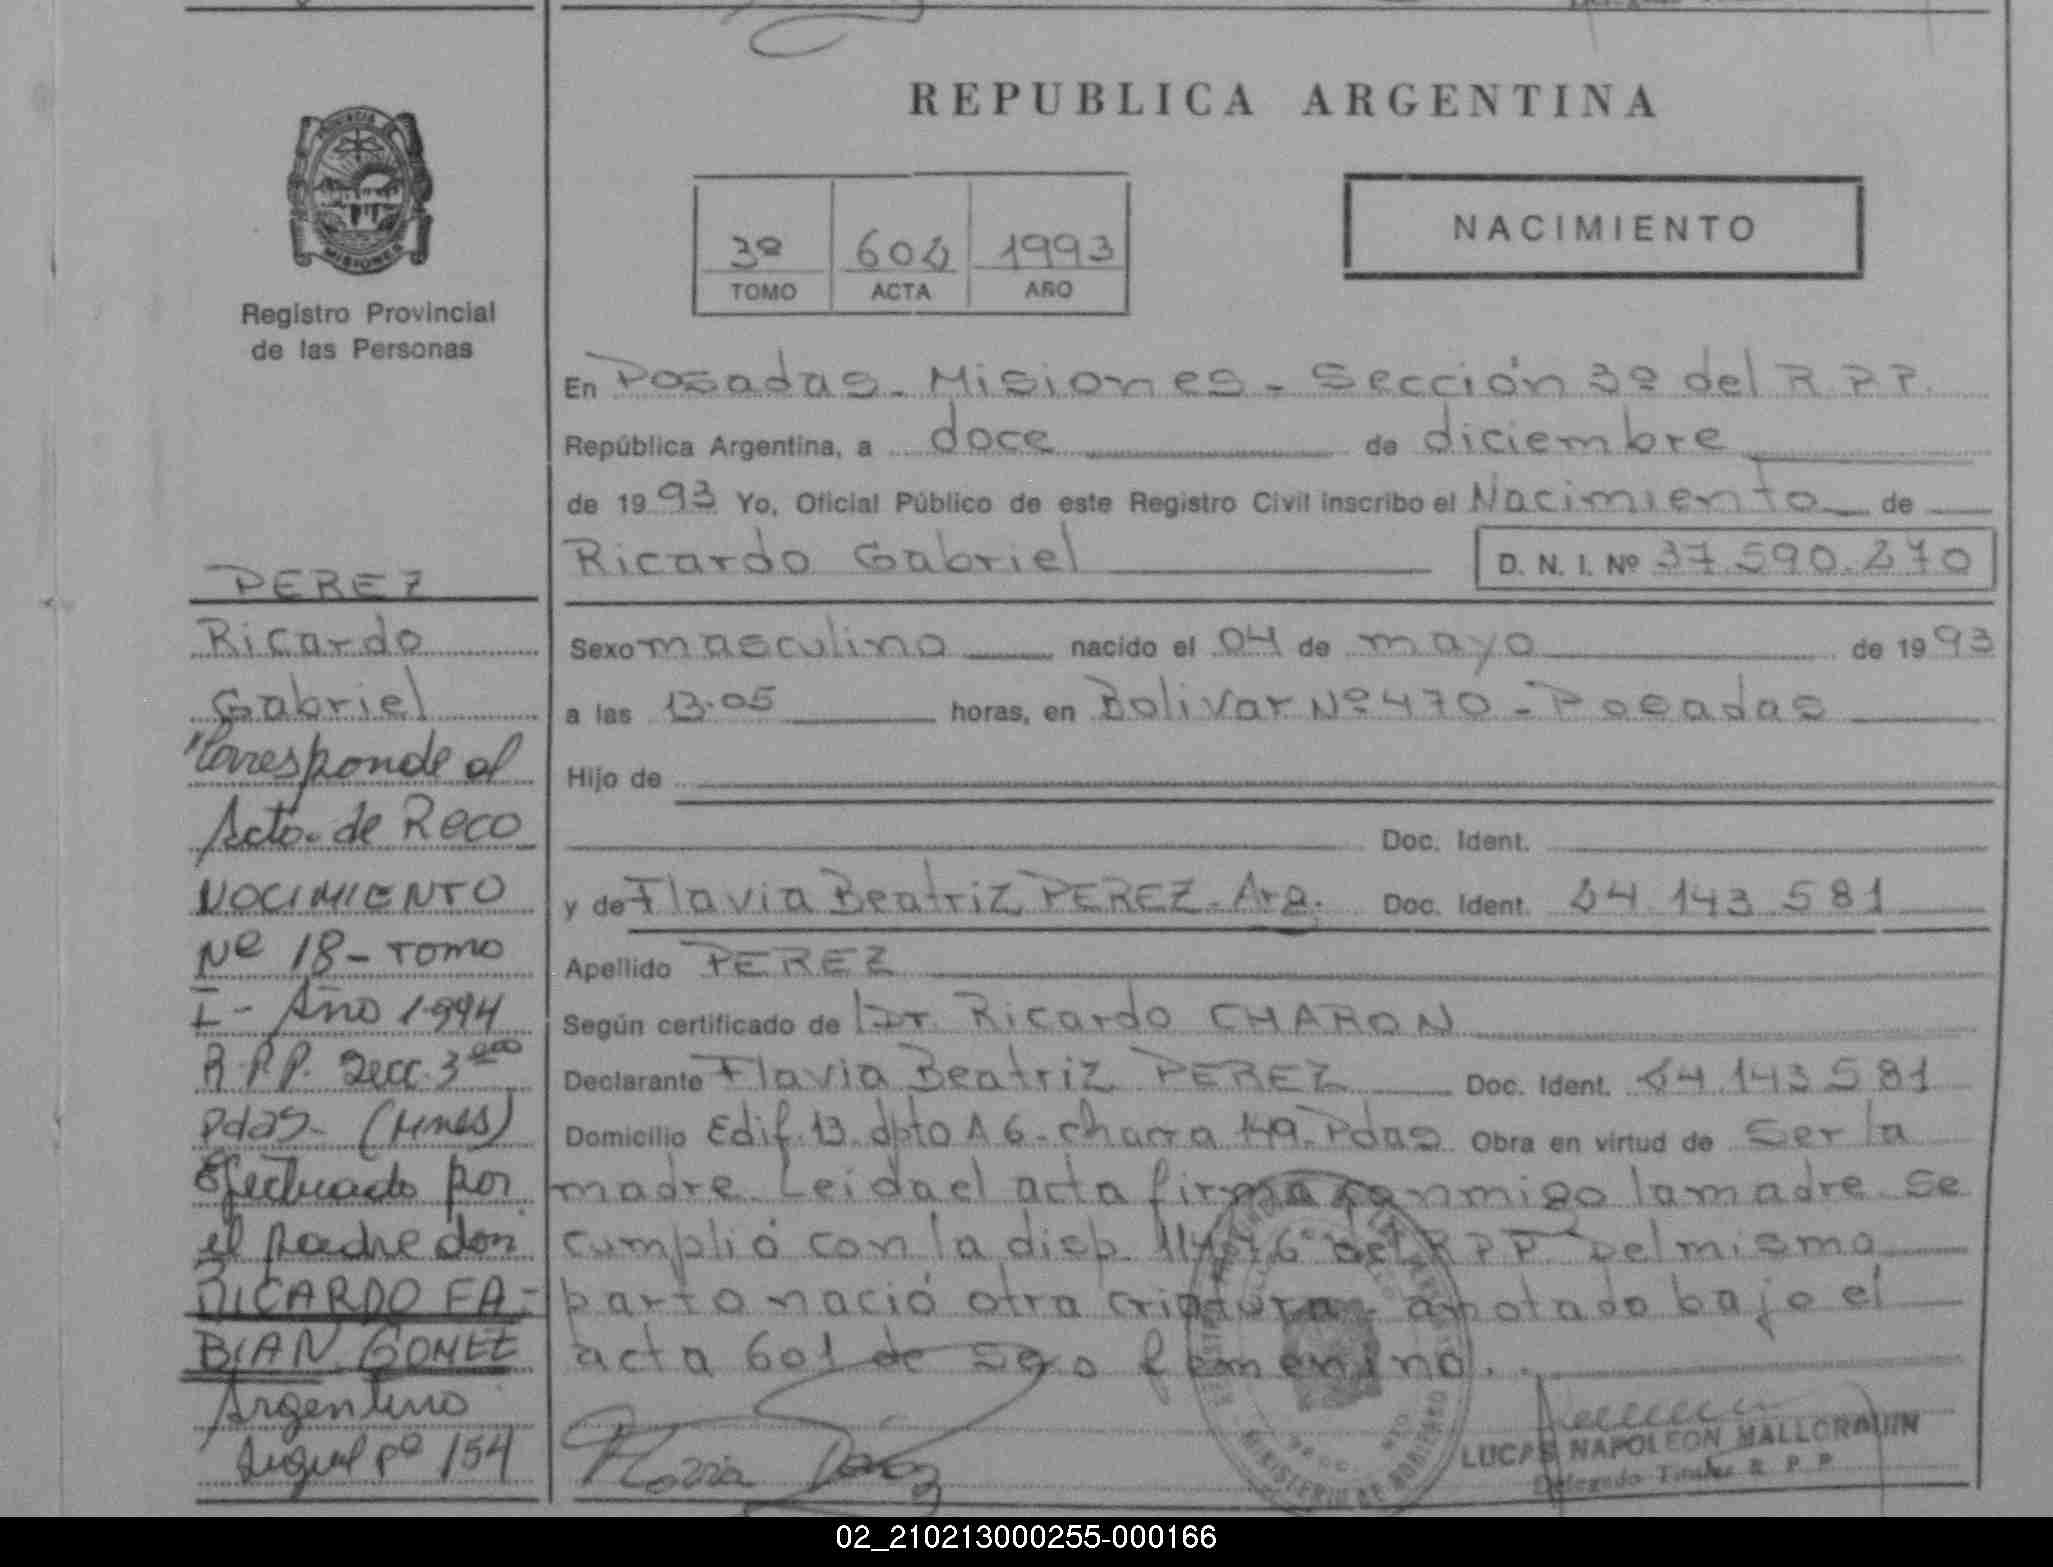 REPUBLICA ARGENTINA
NACIMIENTO
3º 602 1993
TOMO ACTA AÑO
PROVINCIA DE
MISIONES
Registro Provincial
de las Personas
En Posadas - Misiones - Sección 3º del R.P.P.
República Argentina, a doce de diciembre
de 1993 Yo, Oficial Público de este Registro Civil inscribo el Nacimiento de
Ricardo Gabriel D. N. I. Nº 37.590.270
Sexo masculino nacido el 04 de mayo de 1993
a las 13.05 horas, en Bolivar Nº 470 - Posadas
Hijo de
Doc. Ident.
y de Flavia Beatriz PEREZ - Arg. Doc. Ident. 24.143.581
Apellido PEREZ
Según certificado de Dr. Ricardo CHARON
Declarante Flavia Beatriz PEREZ Doc. Ident. 24.143.581
Domicilio Edif. 13. dpto A 6 - chacra 149. Pdas Obra en virtud de Ser la
madre. Leida el acta firma conmigo la madre. Se
cumplió con la disp. del R.P.P. Del mismo
parto nació otra criatura anotado bajo el
acta 601 de sexo femenino.
PEREZ
Ricardo
Gabriel
"Corresponde al
Acta de Reco
NOCIMIENTO
Nº 18 - TOMO
I - Año 1.994
R.P.P. Secc. 3
Pdas - (Mnes)
Efectuado por
el padre don
RICARDO FA-
BIAN GOMEZ
Argentino
154
LUCAS NAPOLEON MALLORQUIN
Delegado Titular R. P. P.
MINISTERIO DE GOBIERNO
02_210213000255-000166